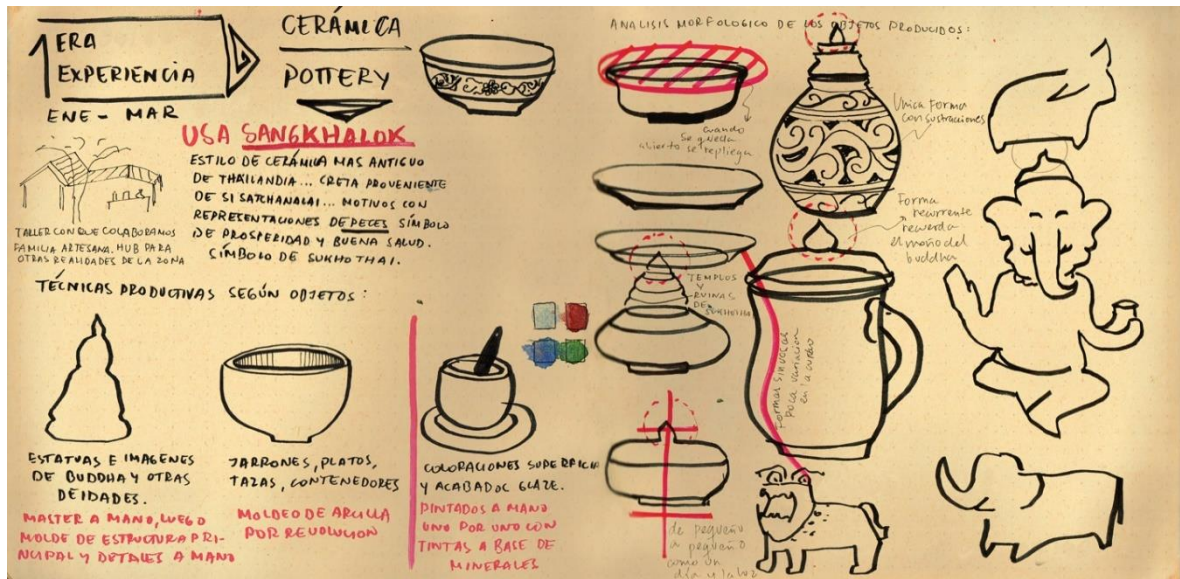 1ERA
EXPERIENCIA
ENE - MAR
CERÁMICA
POTTERY
USA SANGKHALOK
ESTILO DE CERÁMICA MAS ANTIGUO
DE THAILANDIA... CRETA PROVENIENTE
DE SI SATCHANALAI... MOTIVOS CON
REPRESENTACIONES DE PECES SÍMBOLO
DE PROSPERIDAD Y BUENA SALUD.
SÍMBOLO DE SUKHOTHAI.
TALLER CON QUE COLABORAMOS
FAMILIA ARTESANA. HUB PARA
OTRAS REALIDADES DE LA ZONA
TÉCNICAS PRODUCTIVAS SEGÚN OBJETOS:
ESTATUAS E IMAGENES
DE BUDDHA Y OTRAS
DEIDADES.
MASTER A MANO, LUEGO
MOLDE DE ESTRUCTURA PRI-
NCIPAL Y DETALES A MANO
JARRONES, PLATOS,
TAZAS, CONTENEDORES
MOLDEO DE ARCILLA
POR REVOLUCION
COLORACIONES SUPERFICIA
Y ACABADOS GLAZE.
PINTADOS A MANO
UNO POR UNO CON
TINTAS A BASE DE
MINERALES
ANALISIS MORFOLOGICO DE LOS OBJETOS PRODUCIDOS:
cuando
se queda
abierto se repliega
Unica Forma
con sustraciones
Forma
recurrente
recuerda
el moño del
buddha
TEMPLOS
Y
RUINAS
DE
SUKHOTHAI
Formas sinuosas
poca variacion
en la curva
de pequeño
a pequeño
como un